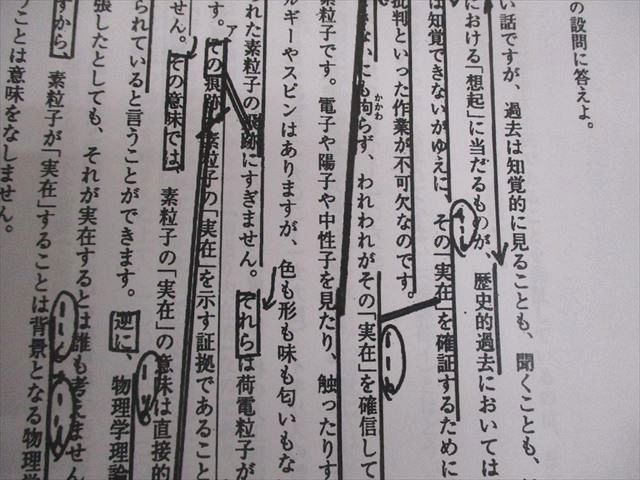 の設問に答えよ。
い話ですが、過去は知覚的に見ることも、聞くことも、
における「想起」に当たるものが、歴史的過去においては
は知覚できないがゆえに、その「実在」を確証するために
批判といった作業が不可欠なのです。
きないにも拘らず、われわれがその「実在」を確信して
かかわ
粒子です。電子や陽子や中性子を見たり、触ったりす
ルギーやスピンはありますが、色も形も味も匂いもな
られた素粒子の痕跡にすぎません。それらは荷電粒子が
ア
す。その痕跡が素粒子の「実在」を示す証拠であること
せん。その意味では、素粒子の「実在」の意味は直接的
られていると言うことができます。逆に、物理学理論
張したとしても、それが実在するとは誰も考えません
すから、素粒子が「実在」することは背景となる物理学
うことは意味をなしません。